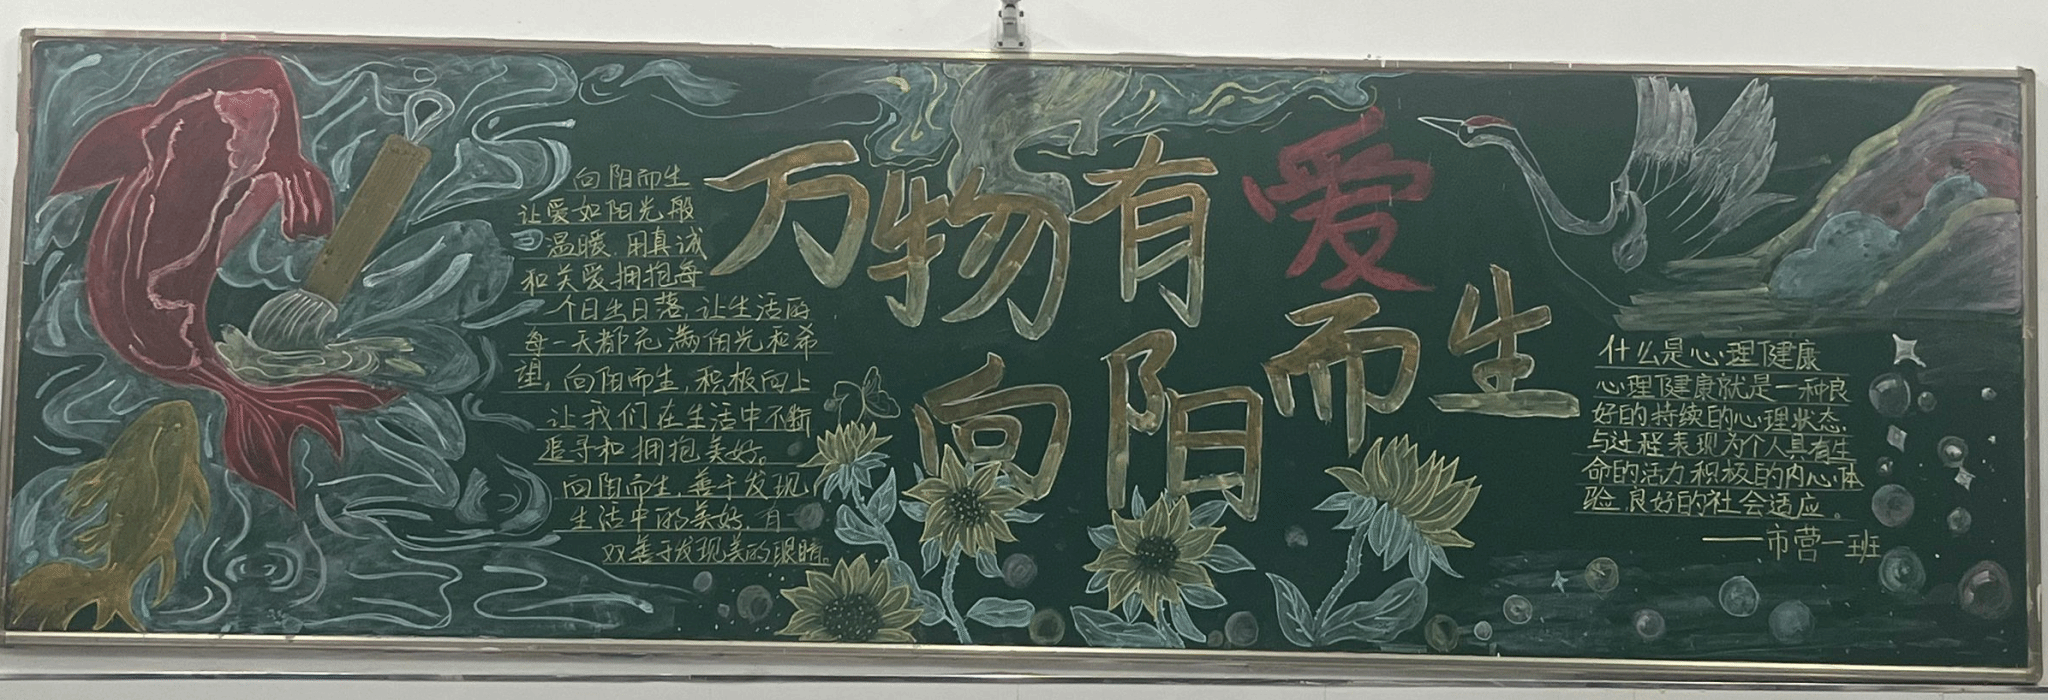 向阳而生
让爱如阳光般
温暖,用真诚
和关爱拥抱每
个日出日落,让生活的
每一天都充满阳光和希
望,向阳而生,积极向上
让我们在生活中不断
追寻和拥抱美好。
向阳而生,善于发现,
生活中的美好,有一
双善于发现美的眼睛。
万物有爱
向阳而生
什么是心理健康
心理健康就是一种良
好的持续的心理状态
与过程表现为个人具有生
命的活力积极的内心体
验,良好的社会适应。
——市营一班